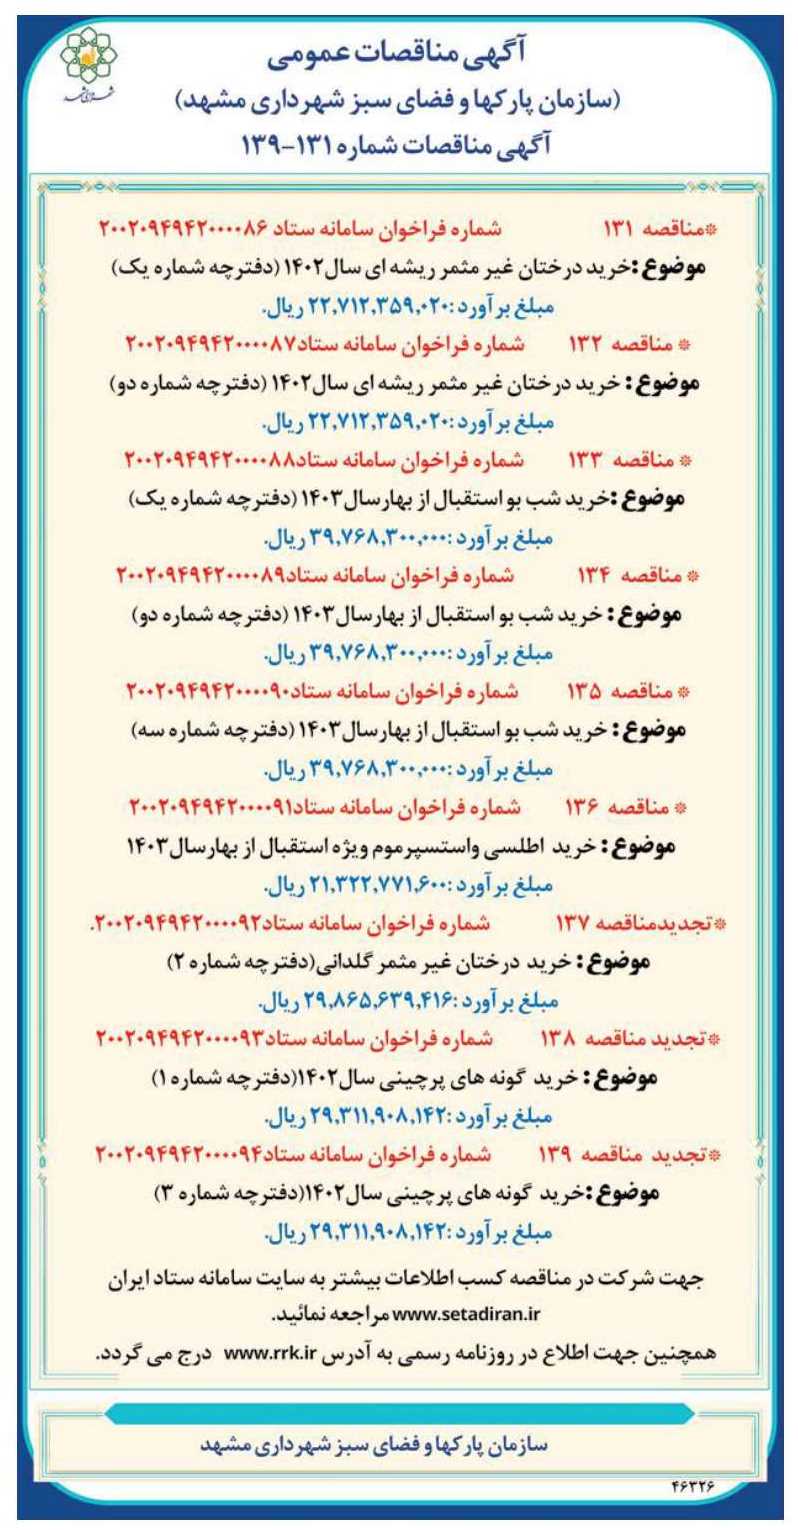 آگهی مناقصات عمومی
(سازمان پارکها و فضای سبز شهرداری مشهد)
آگهی مناقصات شماره ۱۳۱-۱۳۹
*مناقصه ۱۳۱ شماره فراخوان سامانه ستاد ۲۰۰۲۰۹۴۹۴۲۰۰۰۰۸۶
موضوع :خرید درختان غیر مثمر ریشه ای سال۱۴۰۲ (دفترچه شماره یک)
مبلغ برآورد :۲۲,۷۱۲,۳۵۹,۰۲۰ ریال.
* مناقصه ۱۳۲ شماره فراخوان سامانه ستاد۲۰۰۲۰۹۴۹۴۲۰۰۰۰۸۷
موضوع : خرید درختان غیر مثمر ریشه ای سال۱۴۰۲ (دفترچه شماره دو)
مبلغ برآورد :۲۲,۷۱۲,۳۵۹,۰۲۰ ریال.
* مناقصه ۱۳۳ شماره فراخوان سامانه ستاد۲۰۰۲۰۹۴۹۴۲۰۰۰۰۸۸
موضوع :خرید شب بو استقبال از بهارسال۱۴۰۳ (دفترچه شماره یک)
مبلغ برآورد :۳۹,۷۶۸,۳۰۰,۰۰۰ ریال.
* مناقصه ۱۳۴ شماره فراخوان سامانه ستاد۲۰۰۲۰۹۴۹۴۲۰۰۰۰۸۹
موضوع : خرید شب بو استقبال از بهارسال۱۴۰۳ (دفترچه شماره دو)
مبلغ برآورد :۳۹,۷۶۸,۳۰۰,۰۰۰ ریال.
* مناقصه ۱۳۵ شماره فراخوان سامانه ستاد۲۰۰۲۰۹۴۹۴۲۰۰۰۰۹۰
موضوع : خرید شب بو استقبال از بهارسال۱۴۰۳ (دفترچه شماره سه)
مبلغ برآورد :۳۹,۷۶۸,۳۰۰,۰۰۰ ریال.
* مناقصه ۱۳۶ شماره فراخوان سامانه ستاد۲۰۰۲۰۹۴۹۴۲۰۰۰۰۹۱
موضوع : خرید اطلسی واستسپرموم ویژه استقبال از بهارسال۱۴۰۳
مبلغ برآورد :۲۱,۳۲۲,۷۷۱,۶۰۰ ریال.
*تجدیدمناقصه ۱۳۷ شماره فراخوان سامانه ستاد۲۰۰۲۰۹۴۹۴۲۰۰۰۰۹۲.
موضوع : خرید درختان غیر مثمر گلدانی(دفترچه شماره ۲)
مبلغ برآورد :۲۹,۸۶۵,۶۳۹,۴۱۶ ریال.
*تجدید مناقصه ۱۳۸ شماره فراخوان سامانه ستاد۲۰۰۲۰۹۴۹۴۲۰۰۰۰۹۳
موضوع : خرید گونه های پرچینی سال۱۴۰۲(دفترچه شماره ۱)
مبلغ برآورد :۲۹,۳۱۱,۹۰۸,۱۴۲ ریال.
*تجدید مناقصه ۱۳۹ شماره فراخوان سامانه ستاد۲۰۰۲۰۹۴۹۴۲۰۰۰۰۹۴
موضوع :خرید گونه های پرچینی سال۱۴۰۲(دفترچه شماره ۳)
مبلغ برآورد :۲۹,۳۱۱,۹۰۸,۱۴۲ ریال.
جهت شرکت در مناقصه کسب اطلاعات بیشتر به سایت سامانه ستاد ایران
www.setadiran.ir مراجعه نمائید.
همچنین جهت اطلاع در روزنامه رسمی به آدرس www.rrk.ir درج می گردد.
سازمان پارکها و فضای سبز شهرداری مشهد
۴۶۳۲۶